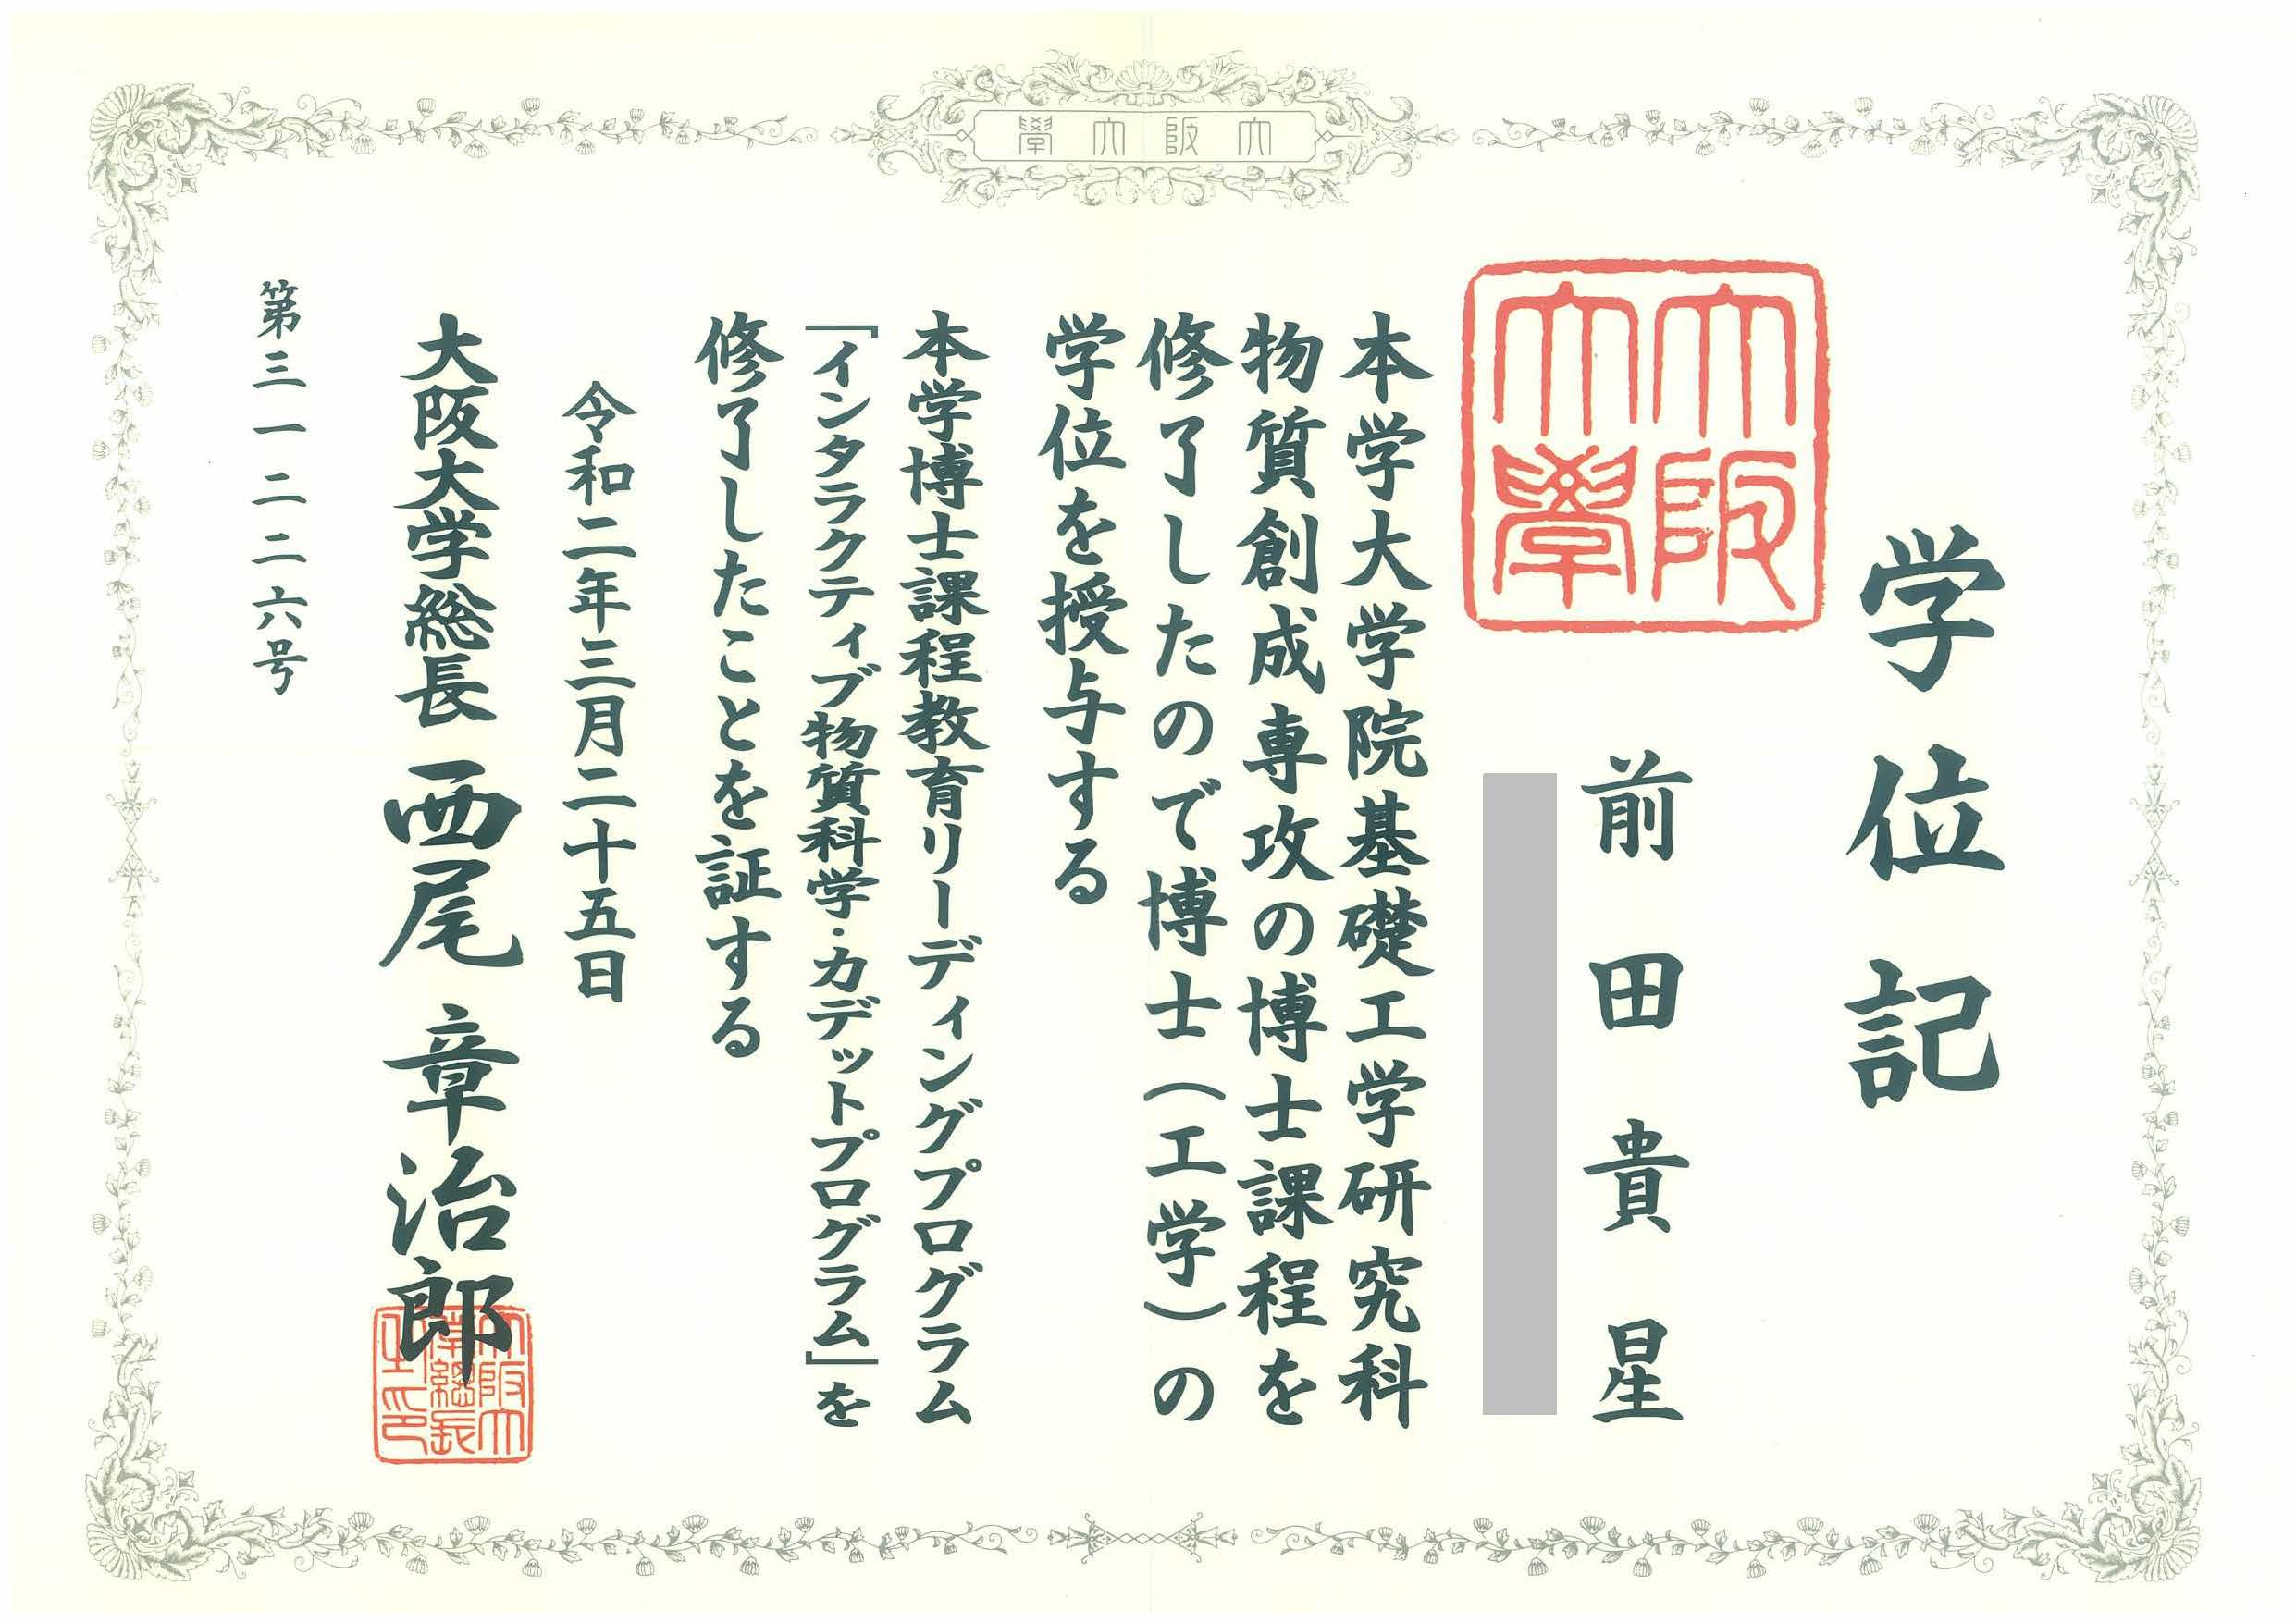 大阪大學
学位記
大阪大學
前田貴星
本学大学院基礎工学研究科
物質創成専攻の博士課程を
修了したので博士(工学)の
学位を授与する
本学博士課程教育リーディングプログラム
「インタラクティブ物質科学・カデットプログラム」を
修了したことを証する
令和二年三月二十五日
大阪大学総長 西尾章治郎
大阪大
学總長
之印
第三一二二六号